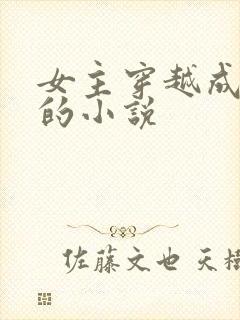 女主穿越成
的小説
佐藤文也 天樹